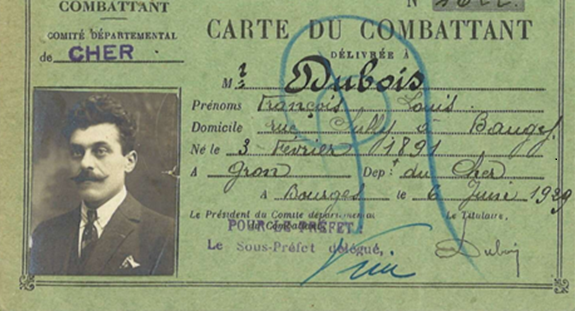 COMBATTANT
COMITÉ DÉPARTEMENTAL
de CHER
N°
CARTE DU COMBATTANT
DÉLIVRÉE À
Mr Dubois
Prénoms François Louis
Domicile rue Sully à Bauges
Né le 3 Février 1891
A Gron Dep.t du Cher
A Bourges le 6 Juin 1929
Le Président du Comité départemental
Le Titulaire,
POUR LE PRÉFET:
Le Sous-Préfet délégué,
Dubois